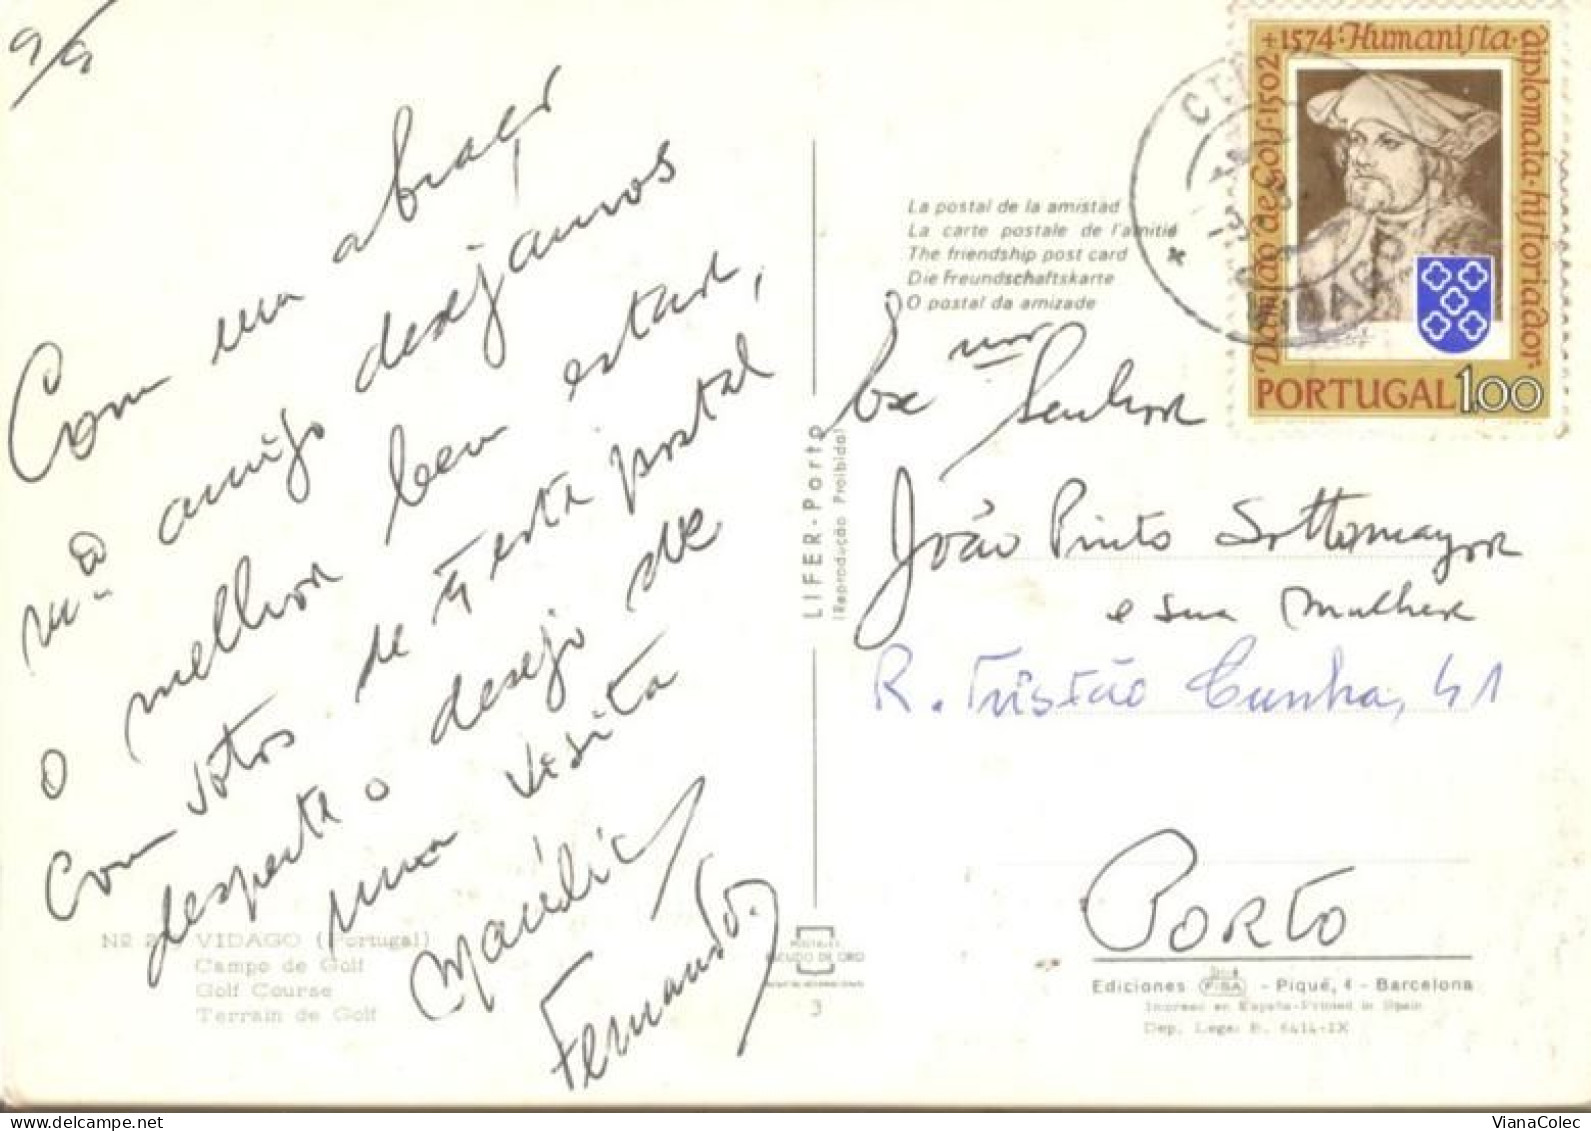 9/9
Com um abraço
m.to amigo desejamos
o melhor bem estar,
Com votos de q este postal
desperte o desejo de
uma visita
Fernando
Nº 2 VIDAGO (Portugal)
Campo de Golf
Golf Course
Terrain de Golf
LIFER - Porto
(Reprodução Proibida)
POSTALES
ESCUDO DE ORO
3
La postal de la amistad
La carte postale de l'amitié
The friendship post card
Die Freundschaftskarte
O postal da amizade
Damião de Gois · 1502 + 1574 : Humanista · diplomata · historiador
PORTUGAL 1.00
Exmo Senhor
João Pinto Sottomayor
e sua Mulher
R. Tristão Cunha, 41
PORTO
Ediciones FISA - Piqué, 4 - Barcelona
Impreso en España - Printed in Spain
Dep. Legal B. 6414-IX
VianaColec